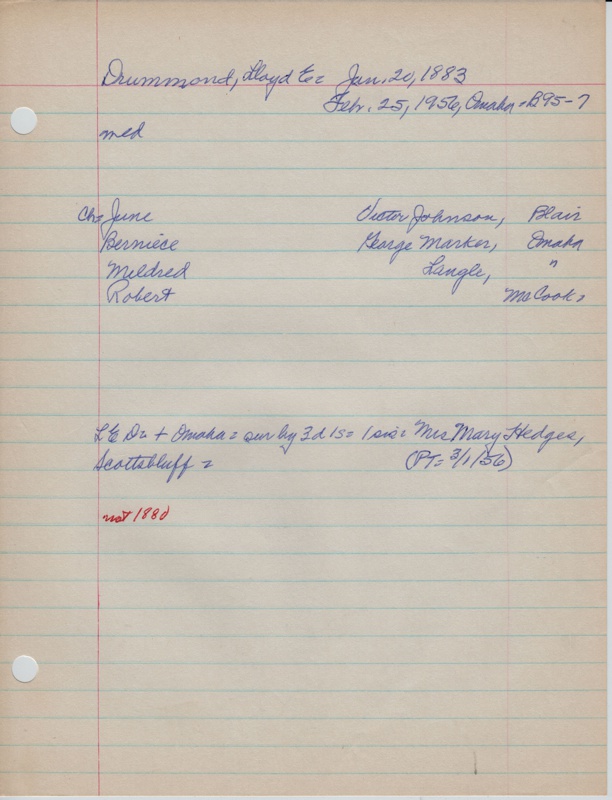 Drummond, Lloyd E= Jan. 20, 1883
Feb. 25, 1956, Omaha = B95-7
med
Ch= June Victor Johnson, Blair
Berniece George Marker, Omaha
Mildred Langle, "
Robert McCook=
L E Dr + Omaha = sur by 3d 1s = 1 sis = Mrs Mary Hedges,
Scottsbluff = (PT= 3/1/56)
not 1880